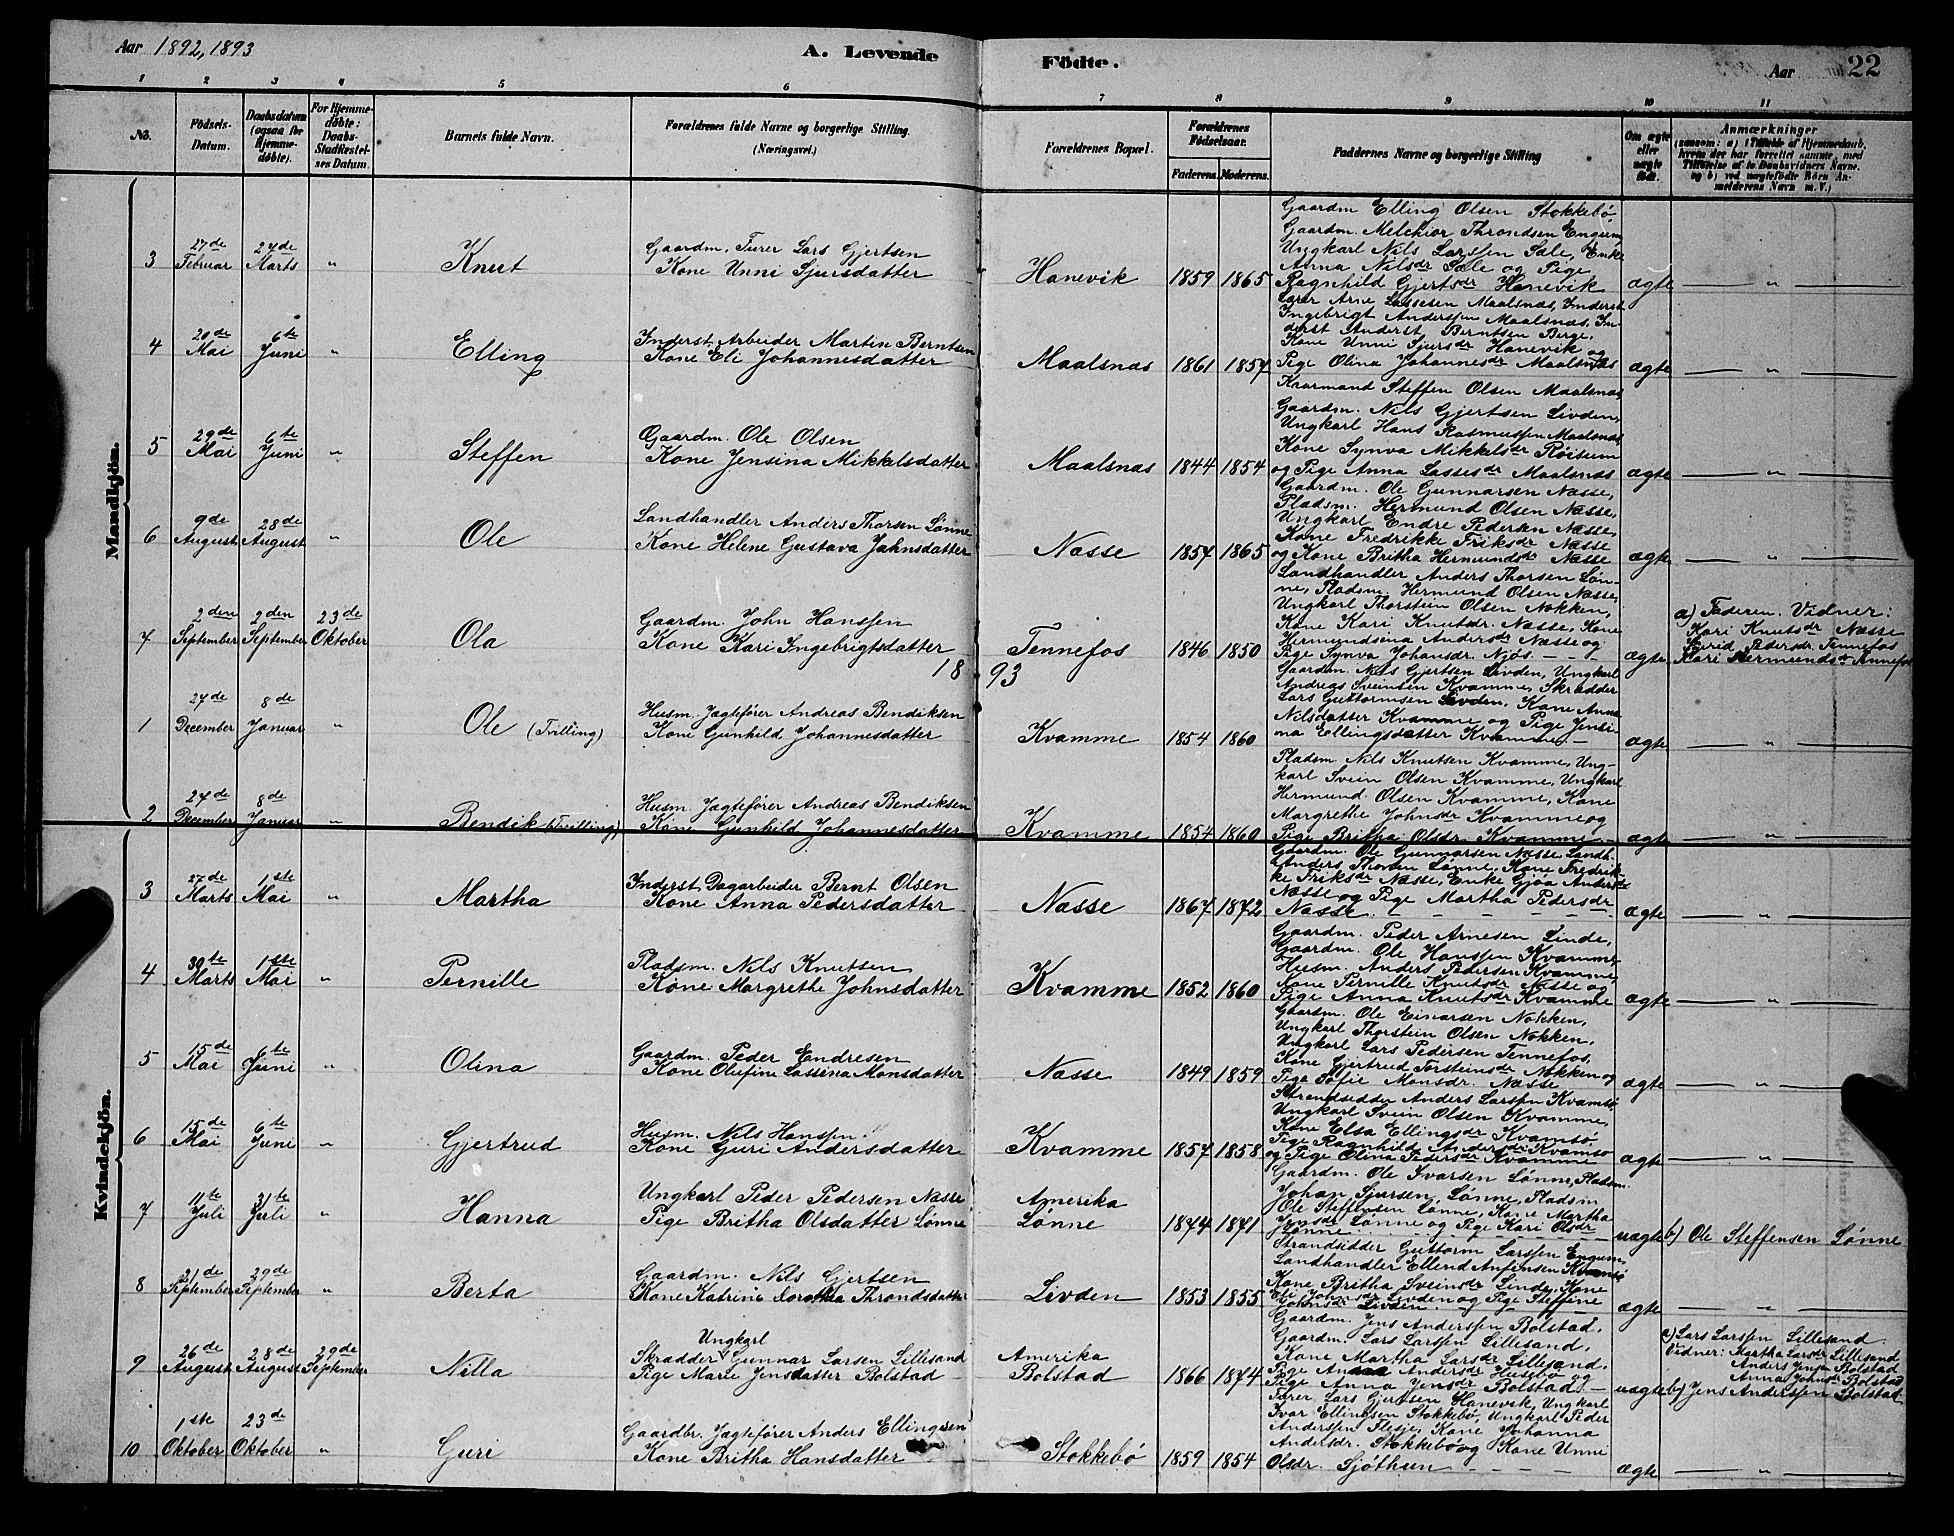 Aar 1892, 1893
A. Levende
Födte.
Aar
22
1 2 3 4 5 6 7 8 9 10 11
No.
Födsels-
Datum.
Daabsdatum
(ogsaa for
Hjemme-
döbte).
For Hjemme-
döbte:
Daabs-
Stadfæstel-
ses Datum.
Barnets fulde Navn.
Forældrenes fulde Navne og borgerlige Stilling.
(Næringsvei.)
Forældrenes Bopæl.
Forældrenes
Födselsaar.
Faderens. Moderens.
Faddernes Navne og borgerlige Stilling
Om ægte
eller
uægte
födt.
Anmærkninger
(saasom: a) i Tilfælde af Hjemmedaab,
hvem der har forrettet samme, med
Tilföielse af to Daabsvidners Navne,
og b) ved uægtefödte Börn An-
melderens Navn m. V.)
Mandkjön.
3
27de
Februar
27de
Marts
"
Knut
Gaardm. Furer Lars Gjertsen
Kone Unni Sjursdatter
Hanevik
1859 1865
Gaardm Elling Olsen Stokkebö
Gaardm. Melchior Throndsen Engum,
Ungkarl Nils Larssen Sæle, Enke
Anna Nilsdr Sæle og Pige
Ragnhild Gjertsdr Hanevik
ægte
"
4
20de
Mai
6te
Juni
"
Elling
Inderst Arbeider Martin Berntsen
Kone Eli Johannesdatter
Maalsnæs
1861 1857
Lærer Arne Lassesen Maalsnæs, Inderst
Ingebrigt Anderssen Maalsnæs, In-
derst Anderst Berntsen Berge,
Kone Unni Sjursdr Hanevik og
Pige Olina Johannesdr Maalsnæs
ægte
"
5
29de
Mai
6te
Juni
"
Steffen
Gaardm. Ole Olsen
Kone Jensina Mikkelsdatter
Maalsnæs
1844 1854
Kaarmand Steffen Olsen Maalsnæs
Gaardm. Nils Gjertsen Livden,
Ungkarl Hans Rasmussen Maalsnæs
Kone Synva Mikkelsdr Röisum
og Pige Anna Lassesdr Maalsnæs
ægte
"
6
9de
August
28de
August
"
Ole
Landhandler Anders Thorsen Lönne
Kone Helene Gustava Jahnsdatter
Næsse
1857 1865
Gaardm. Ole Gunnarsen Næsse,
Pladsm. Hermund Olsen Næsse,
Ungkarl Endre Pedersen Næsse,
Kone Fredrikke Friksdr Næsse
og Kone Britha Hermundsdr Næsse
ægte
"
7
2den
September
2den
September
23de
Oktober
Ola
Gaardm. John Hanssen
Kone Kari Ingebrigtsdatter
Tennefos
1846 1850
Landhandler Anders Thorsen Lön-
ne, Pladsm. Hermund Olsen Næsse,
Ungkarl Thorstein Olsen Nokken,
Kone Kari Knutsdr. Næsse, Kone
Hermundsina Andersdr Næsse og
Pige Synva Johansdr. Njös
ægte
a) Faderen. Vidner:
Kari Knutsdr Næsse
Sigrid Pedersdr Tennefos
Kari Hermundsdr Tennefos
1893
1
27de
December
8de
Januar
"
Ole (Tvilling)
Husm. Jægtefører Andreas Bendiksen
Kone Gunhild Johannesdatter
Kvamme
1854 1860
Gaardm. Nils Gjertsen Livden, Ungkarl
Andreas Sveinsen Kvamme, Skrædder
Lars Guttormsen Livden, Kone Anna
Nilsdatter Kvamme og Pige Jensi-
na Ellingsdatter Kvamme
ægte
"
2
27de
December
8de
Januar
"
Bendik (Tvilling)
Husm. Jægtefører Andreas Bendiksen
Kone Gunhild Johannesdatter
Kvamme
1854 1860
Pladsm. Nils Knutsen Kvamme, Ung-
karl Svein Olsen Kvamme, Ungkarl
Hermund Olsen Kvamme, Kone
Margrethe Johnsdr Kvamme og
Pige Britha Olsdr. Kvamme
ægte
"
Kvindekjön.
3
27de
Marts
1ste
Mai
"
Martha
Inderst Dagarbeider Bernt Olsen
Kone Anna Pedersdatter
Næsse
1867 1872
Gaardm. Ole Gunnarsen Næsse, Landh.
Anders Thorsen Lönne, Kone Fredrik-
ke Friksdr Næsse, Enke Gjöa Andersdr
Næsse og Pige Martha Pedersdr
Næsse
ægte
"
4
30te
Marts
1ste
Mai
"
Pernille
Pladsm. Nils Knutsen
Kone Margrethe Johnsdatter
Kvamme
1852 1860
Gaardm. Peder Arnesen Linde,
Gaardm. Ole Hanssen Kvamme
Husm. Anders Pedersen Kvamme,
Kone Pernille Knutsdr Næsse og
Pige Anna Knutsdr Kvamme
ægte
"
5
15de
Mai
6te
Juni
"
Olina
Gaardm. Peder Endresen
Kone Olufine Lassina Monsdatter
Næsse
1849 1859
Gaardm. Ole Einarsen Nokken,
Ungkarl Thorstein Olsen Nokken,
Ungkarl Lars Pedersen Tennefos,
Kone Gjertrud Torsteinsdr Nokken og
Pige Sofie Monsdr. Næsse
ægte
"
6
15de
Mai
6te
Juni
"
Gjertrud
Husm. Nils Hanssen
Kone Guri Andersdatter
Kvamme
1857 1858
Strandsidder Anders Larssen Kvamsö,
Ungkarl Svein Olsen Kvamme,
Kone Elsa Ellingsdr Kvamsö
Pige Ragnhilda Andersdr Kvamsö
og Pige Olina Pedersdr Kvamme
ægte
"
7
11te
Juli
31te
Juli
"
Hanna
Ungkarl Peder Pedersen Næsse
Pige Britha Olsdatter Lönne
Amerika
Lönne
1874 1871
Gaardm. Ole Ivarsen Lönne, Pladsm.
Johan Sjursen, Lönne, Pladsm
Ole Steffensen Lønne, Kone Martha
Jensdr Lønne og Pige Kari Olsdr
Lønne
uægte
b) Ole Steffensen Lønne
8
21de
September
29de
September
"
Berta
Gaardm. Nils Gjertsen
Kone Katrine Dorothea Throndsdatter
Livden
1853 1855
Strandsidder Guttorm Larssen Engum,
Landhandler Ellend Anfinsen Kvamsö
Kone Britha Sveinsdr Linde, Kone
Eli Johnsdr Livden og Pige Steffine
Johnsdr Livden
ægte
"
9
26de
August
28de
August
29de
September
Nilla
Ungkarl
Skrædder Gunnar Larsen Lillesand
Pige Marie Jensdatter Bolstad
Amerika
Bolstad
1866 1874
Gaardm. Jens Anderssen Bolstad,
Gaardm. Lars Larssen Lillesand,
Kone Martha Larsdr Lillesand,
Pige Anna Andersdr Husebö og
Pige Anna Jensdr Bolstad
uægte
a) Lars Larssen Lillesand
Vidner: Martha Larsdr Lillesand
Anders Jensen Bolstad
Anna Johnsdr Bolstad
b) Jens Anderssen Bolstad
10
1ste
Oktober
23de
Oktober
"
Guri
Gaardbr. Jægtefører Anders Ellingsen
Kone Britha Hansdatter
Stokkebö
1859 1854
Fører Lars Gjertsen Hanevik, Ungkarl
Ivar Ellingsen Stokkebö, Ungkarl Peder
Anderssen Flesje, Kone Johanna
Andersdr. Stokkebö og Kone Unni
Olsdr. Sjöthun
ægte
"